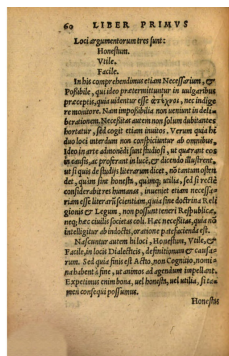 60 LIBER PRIMVS
Loci argumentorum tres sunt:
Honestum.
Vtile.
Facile.
In his comprehendimus etiam Necessarium, &
Possibile, qui ideo prætermittuntur in vulgaribus
præceptis, quia videntur esse nec indige
re monitore. Nam impossibilia non veniunt in deli
berationem. Necessitas autem non solum dubitantes
hortatur, sed cogit etiam invitos. Verum quia hi
duo loci interdum non conspiciuntur ab omnibus,
Ideo in arte admonēdi sunt studiosi, ut quærant eos
in causis, ac proferant in lucē, & dicendo illustrent,
ut si quis de studijs literarum dicet, nō tantum osten
det, quàm sint honesta, quàmq; utilia, sed si rectè
considerabit res humanas, inveniet etiam necessa-
riam esse literarū scientiam, quia sine doctrina Reli
gionis & Legum, non possunt teneri Respublicæ,
neq; hæc civilis societas coli. Hæc necessitas, quia nō
intelligitur ab indoctis, oratione patefacienda est.
Nascuntur autem hi loci, Honestum, Vtile, &
Facile, in locis Dialecticis, definitionum & causa-
rum. Sed quia finis est Actio, non Cognitio, nomi
na habent à fine, ut animos ad agendum impellant.
Expetimus enim bona, vel honesta, vel utilia, si ta-
men consequi possumus.
Honestis